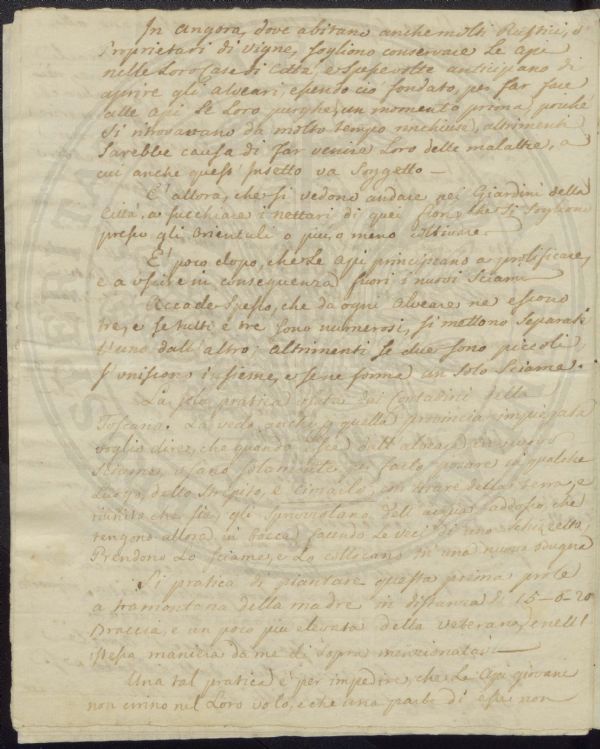 In Angora, dove abitano anche molti Rustici, o
Proprietari di vigne, sogliono conservare Le api
nelle Loro Case di Città, e spesse volte anticipano di
aprire gli alveari, essendo ciò fondato, per far fare
alle api Le Loro purghe, un momento prima, poiché
si ritrovavano da molto tempo rinchiuse, altrimenti
sarebbe causa di far venire Loro delle malattie, a
cui anche quest' Insetto va soggetto —
È allora, che si vedono andare nei Giardini della
Città, a succhiare i nettari di quei fiori, che si sogliono
presso gli Orientali o più, o meno coltivare.
È poco dopo, che Le Api principiano a prolificare,
e a uscire in conseguenza fuori i nuovi Sciami
Accade spesso, che da ogni Alveare ne escono
tre, e se tutti e tre sono numerosi, si mettono separati
l'uno dall' altro; altrimenti se due sono piccoli,
s'uniscono insieme, e se ne forma un solo Sciame.
La stessa pratica usata dai Contadini della
Toscana. La vedo anche a quella provincia impiegata
voglio dire, che quando esce dall' alveare un nuovo
Sciame, usano solamente per farlo posare in qualche
Luogo, dello strepito, e tirare della terra, e
riunito che sia, gli spruzzolano dell' acqua addosso, che
tengono allora in bocca, facendo Le veci di uno schizzetto,
Prendono Lo Sciame, e Lo collocano in una nuova
Si pratica di piantare questa prima prole
a tramontana della madre in distanza di 15 - o - 20
Braccia, e un poco più elevata della veterana, e nell'
stessa maniera da me di sopra menzionata —
Una tal pratica è per impedire, che Le Api giovani
non errino nel Loro volo, e che una parte di esse non